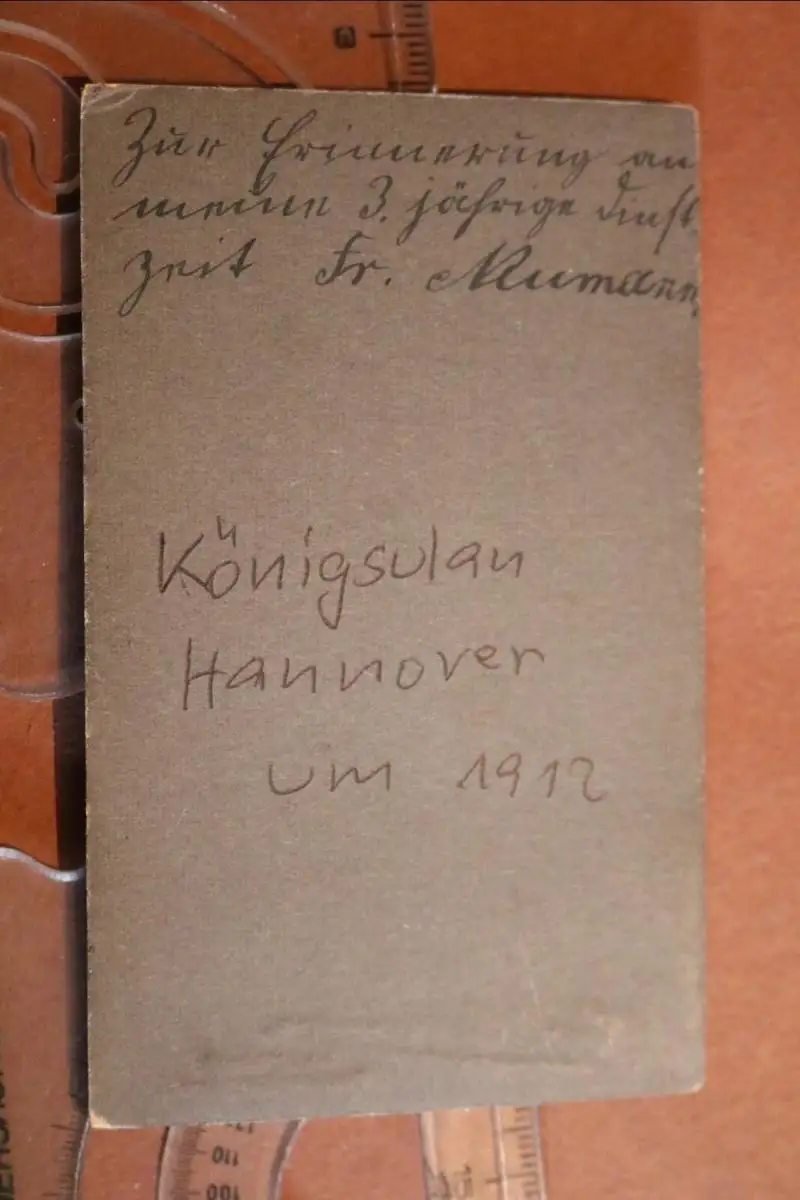 Zur Erinnerung an
meine 3. jährige Dinst
zeit Fr. Mumann
Königsulan
Hannover
um 1912
110
100